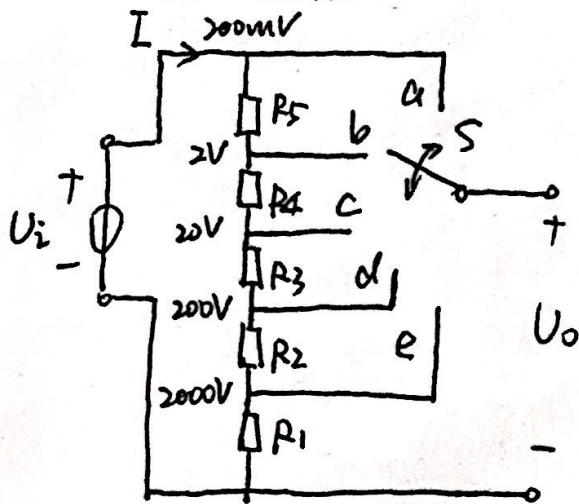 I 200mV
a
R5
b S
2V
+ R4
Ui 20V c +
- R3
d
200V Uo
R2 e
2000V
R1 -